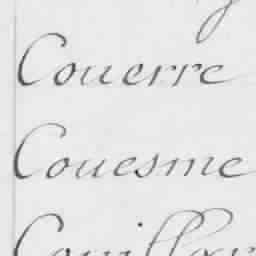 Couerre
Couesme